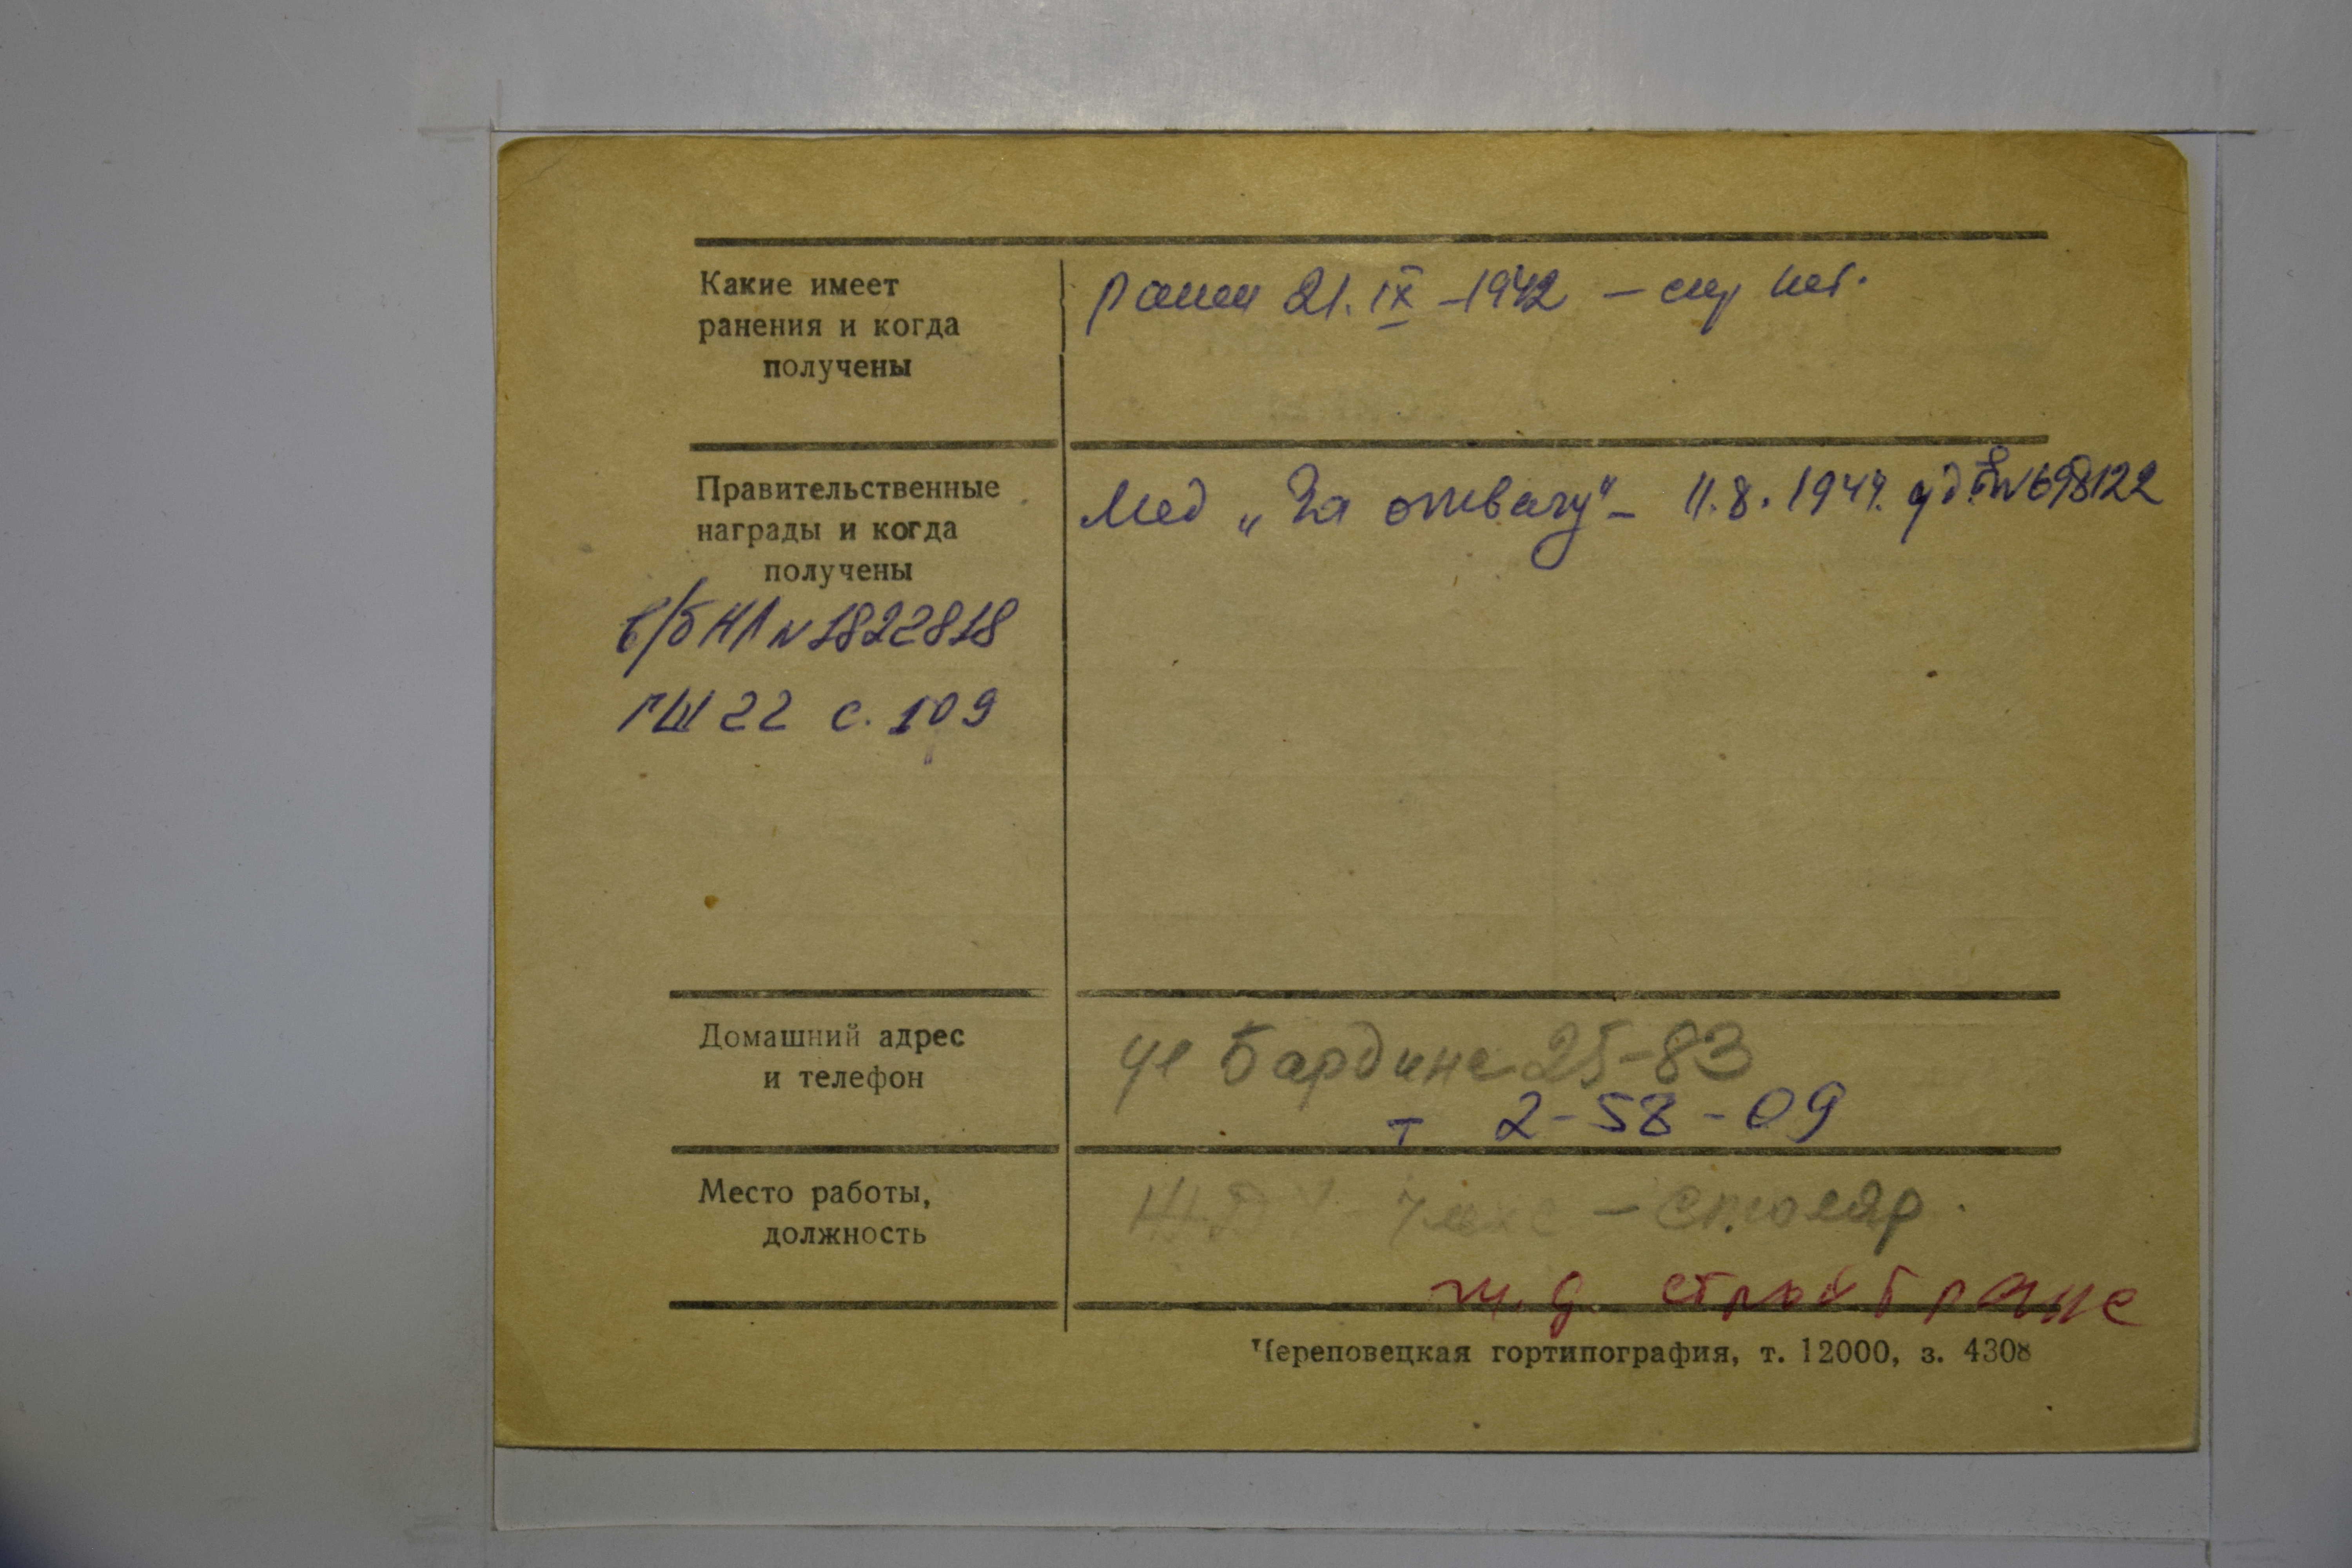 Какие имеет
ранения и когда
получены
ранен 21.IX-1942 - спр нет.
Правительственные
награды и когда
получены
Мед „За отвагу" - 11.8.1944. уд. № 698122
в/б НЛ № 1822818
ГШ 22 с. 109
Домашний адрес
и телефон
ул Бардина 25-83
т 2-58-09
Место работы,
должность
- столяр.
Череповецкая гортипография, т. 12000, з. 4308